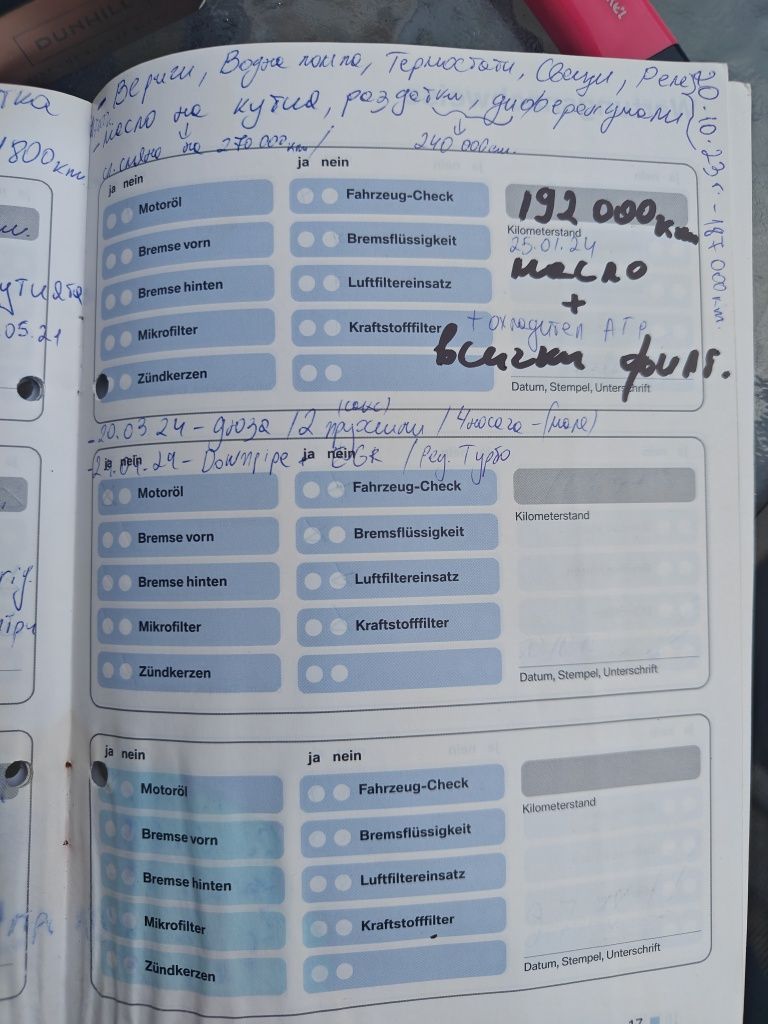 DUNHILL
• Вериги, Водна помпа, Термостати, Свещи, Реле
- масло на кутия, раздатки, диференциали
20.10.23г. - 187 000км.
сл. смяна на 270 000км /
240 000км.
ja nein
Motoröl
Bremse vorn
Bremse hinten
Mikrofilter
Zündkerzen
ja nein
Fahrzeug-Check
Bremsflüssigkeit
Luftfiltereinsatz
Kraftstofffilter
192 000км
Kilometerstand
25.01.24
масло
+
+ охладител АТР.
всички филт.
Datum, Stempel, Unterschrift
- 20.03.24 - дюза /2 пружини / 4 носача -
Downpipe + EGR / Рец. Турбо
ja nein
Motoröl
Bremse vorn
Bremse hinten
Mikrofilter
Zündkerzen
ja nein
Fahrzeug-Check
Bremsflüssigkeit
Luftfiltereinsatz
Kraftstofffilter
Kilometerstand
Datum, Stempel, Unterschrift
ja nein
Motoröl
Bremse vorn
Bremse hinten
Mikrofilter
Zündkerzen
ja nein
Fahrzeug-Check
Bremsflüssigkeit
Luftfiltereinsatz
Kraftstofffilter
Kilometerstand
Datum, Stempel, Unterschrift
17